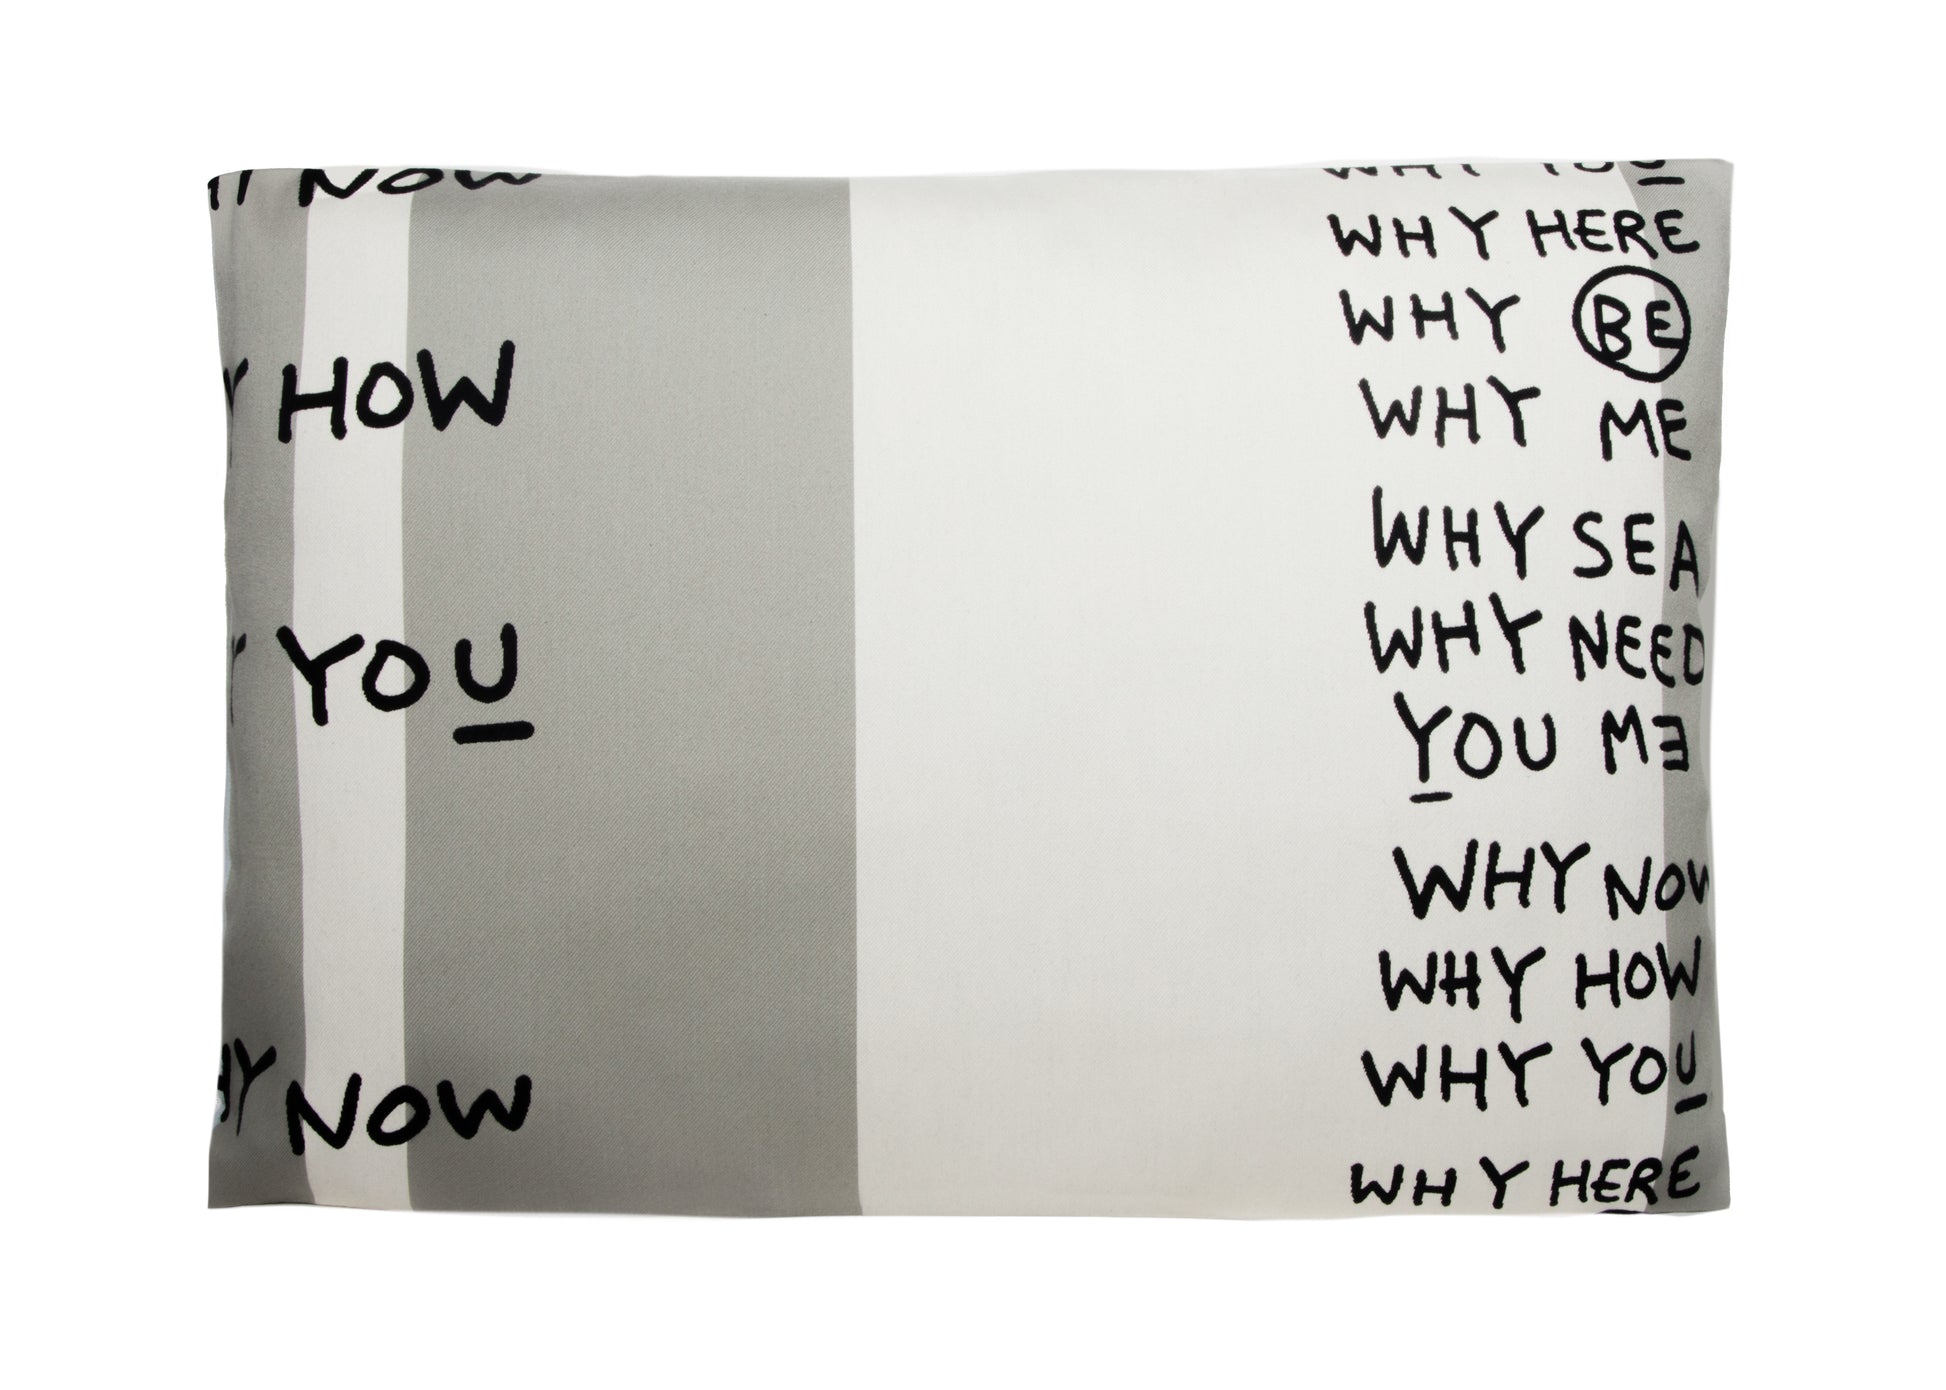 NOW
HOW
YOU
HY NOW
WHY YOU
WHY HERE
WHY BE
WHY ME
WHY SEA
WHY NEED
YOU MƎ
WHY NOW
WHY HOW
WHY YOU
WHY HERE